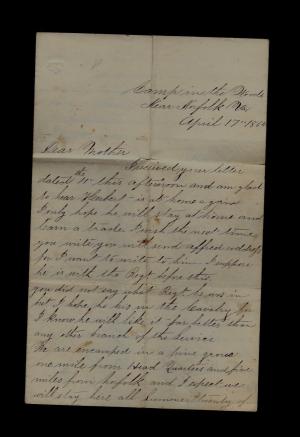 Camp in the Woods
Near Norfolk Va
April 17th 186
Dear Mother
Received your letter
dated the 11th this afternoon and am glad
to hear Herbert is at home again
I only hope he will stay at home and
learn a trade I wish the next time
you write you will send
for I want to write to him I suppose
he is with the Regt before this
you did not say what Regt he was in
but I hope he his in the Cavalry for
I know he will like it far better than
any other branch of the service
We are encamped in a pine grove
one mile from Head Quarters and five
miles from Norfolk and I expect we
will stay here all Summer of